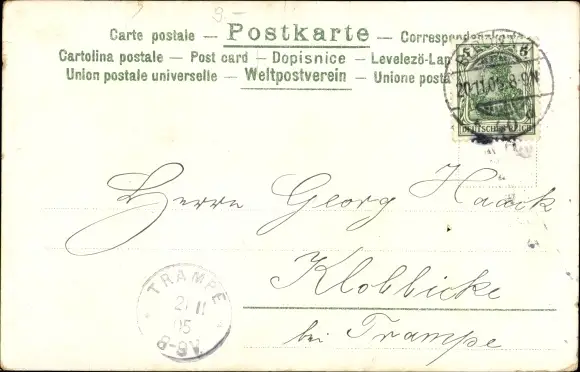 9.-
Carte postale — Postkarte — Correspondenzkarte
Cartolina postale — Post card — Dopisnice — Levelező-Lap
Union postale universelle — Weltpostverein — Unione posta
5 5
20.11.05. 8-9N
DEUTSCHES REICH
Herrn Georg Haack
Klobbicke
bei Trampe
TRAMPE
21 11
05
8-9V.